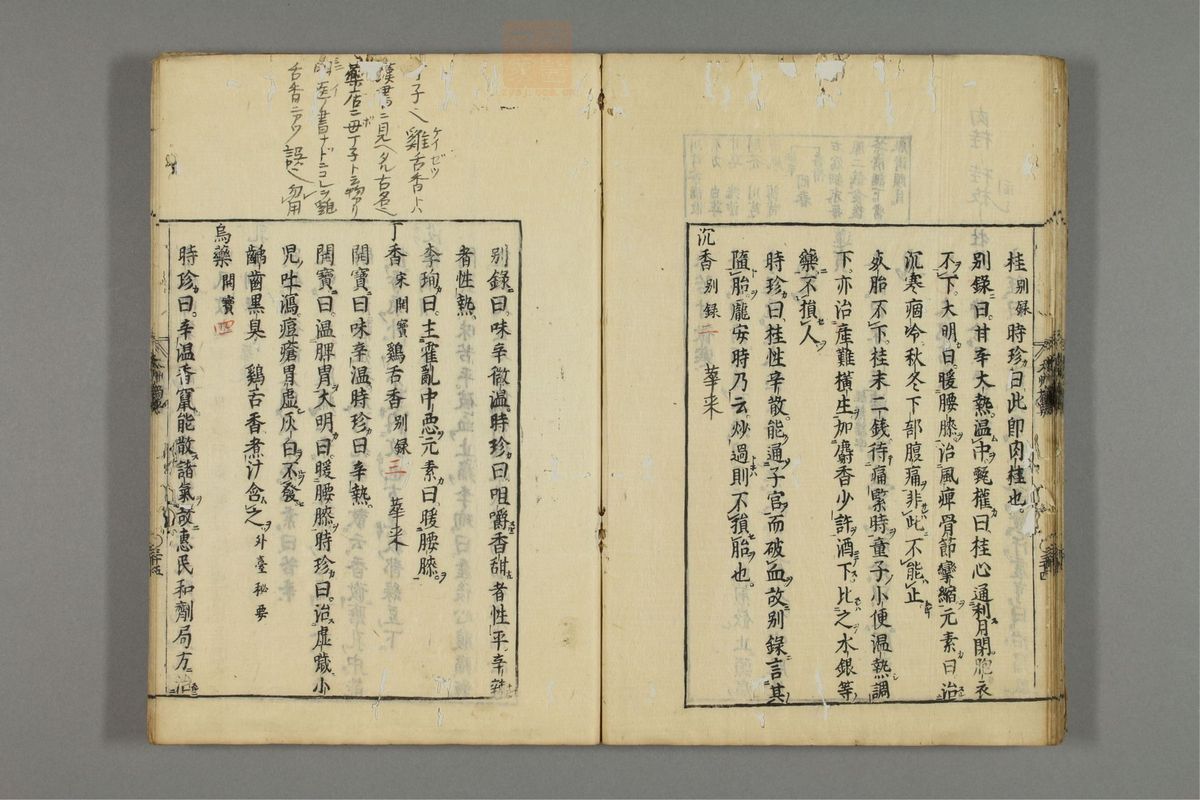 桂別録時珍曰此即肉桂也
別錄曰甘辛大熱温中甄權曰桂心通利月閉胞衣
不下大明曰暖腰膝治風痺骨節攣縮元素曰治
沉寒痼冷秋冬下部腹痛非此不能止
下桂末二錢待痛緊時童子小便温熱調
下亦治産難横生加麝香少許酒下比之水銀等
藥不損人
時珍曰桂性辛散能通子宮而破血故別錄言其
墮胎龐安時乃云炒過則不損胎也
沉香別録二 華来
別錄曰味辛微温時珍曰咀嚼香甜者性平辛辣
者性熱
李珣曰主霍亂中惡元素曰暖腰膝
丁香宋開寶鷄舌香別録三 華来
開寶曰味辛温時珍曰辛熱
開寶曰温脾胃大明曰暖腰膝時珍曰治虚噦小
児吐瀉痘瘡胃虚灰白不發
齲齒黒臭鷄舌香煮汁含之外臺秘要
烏藥開寶四
時珍曰辛温香竄能散諸氣故惠民和劑局方治
丁子ハ雞舌香ト
ケイゼツ
漢書ニ見ヘタル古名
藥店ニ母丁子ト云物アリ
舌香ニアツ誤勿用